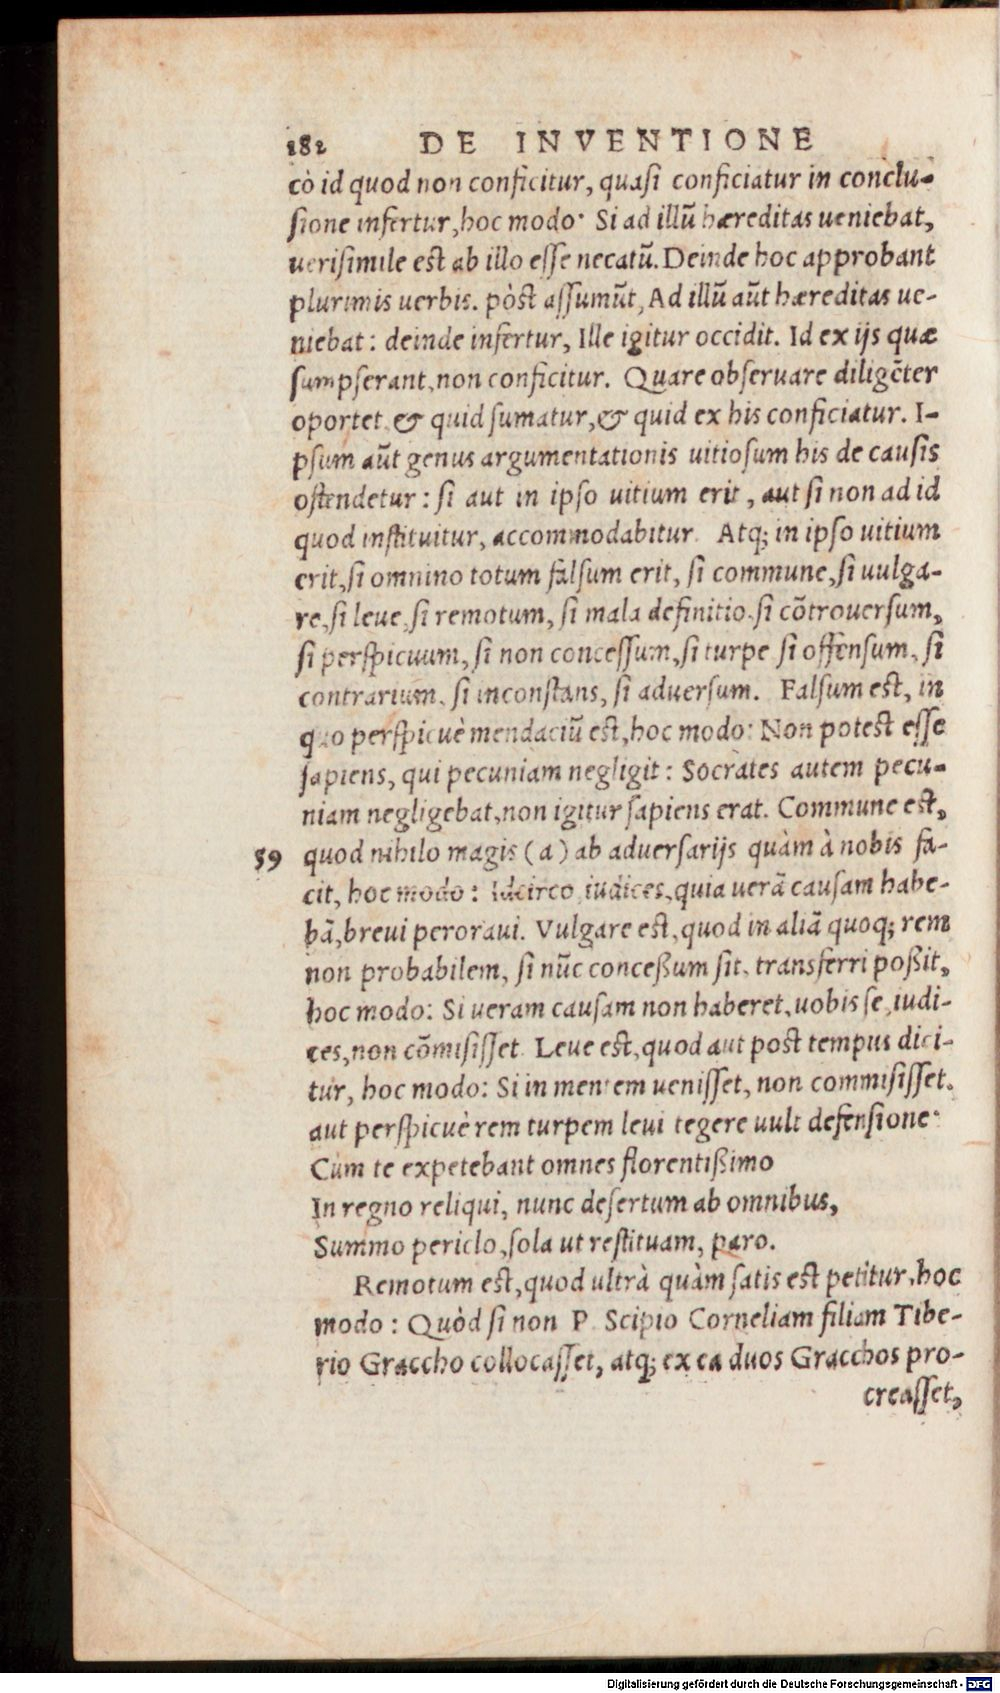 182 DE INVENTIONE
cò id quod non conficitur, quasi conficiatur in conclu-
sione infertur, hoc modo· Si ad illū hæreditas ueniebat,
uerisimile est ab illo esse necatū. Deinde hoc approbant
plurimis uerbis. pòst assumūt, Ad illū aūt hæreditas ue-
niebat: deinde infertur, Ille igitur occidit. Id ex ijs quæ
sumpserant, non conficitur. Quare obseruare diligēter
oportet & quid sumatur, & quid ex his conficiatur. I-
psum aūt genus argumentationis uitiosum his de causis
ostendetur: si aut in ipso uitium erit, aut si non ad id
quod instituitur, accommodabitur. Atq; in ipso uitium
erit, si omnino totum falsum erit, si commune, si uulga-
re, si leue, si remotum, si mala definitio. si cōtrouersum,
si perspicuum, si non concessum, si turpe si offensum, si
contrarium, si inconstans, si aduersum. Falsum est, in
quo perspicuè mendaciū est, hoc modo: Non potest esse
sapiens, qui pecuniam negligit: Socrates autem pecu-
niam negligebat, non igitur sapiens erat. Commune est,
59 quod nihilo magis (a) ab aduersarijs quàm à nobis fa-
cit, hoc modo: Idcirco iudices, quia uerā causam habe-
bā, breui peroraui. Vulgare est, quod in aliā quoq; rem
non probabilem, si nūc conceßum sit, transferri poßit,
hoc modo: Si ueram causam non haberet, uobis se, iudi-
ces, non cōmisisset. Leue est, quod aut post tempus dici-
tur, hoc modo: Si in mentem uenisset, non commisisset.
aut perspicuè rem turpem leui tegere uult defensione·
Cùm te expetebant omnes florentißimo
In regno reliqui, nunc desertum ab omnibus,
Summo periclo, sola ut restituam, paro.
Remotum est, quod ultrà quàm satis est petitur, hoc
modo: Quòd si non P. Scipio Corneliam filiam Tibe-
rio Graccho collocasset, atq; ex ea duos Gracchos pro-
creasset,
Digitalisierung gefördert durch die Deutsche Forschungsgemeinschaft - DFG